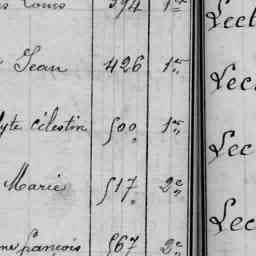 Louis 594 1er Lect
Jean 426 1er Lec
lyte Célestin 500 1er Lec
Marie 517 2e Lec
françois 567 2e